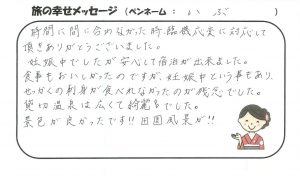 旅の幸せメッセージ(ペンネーム:いぶ)
時間に間に合わなかった時、臨機応変に対応して
頂きありがとうございました。
妊娠中でしたが安心して宿泊が出来ました。
食事もおいしかったのですが、妊娠中という事もあり、
せっかくの刺身が食べれなかったのが残念でした。
貸切温泉は広くて綺麗でした。
景色が良かったです!!田園風景が!!